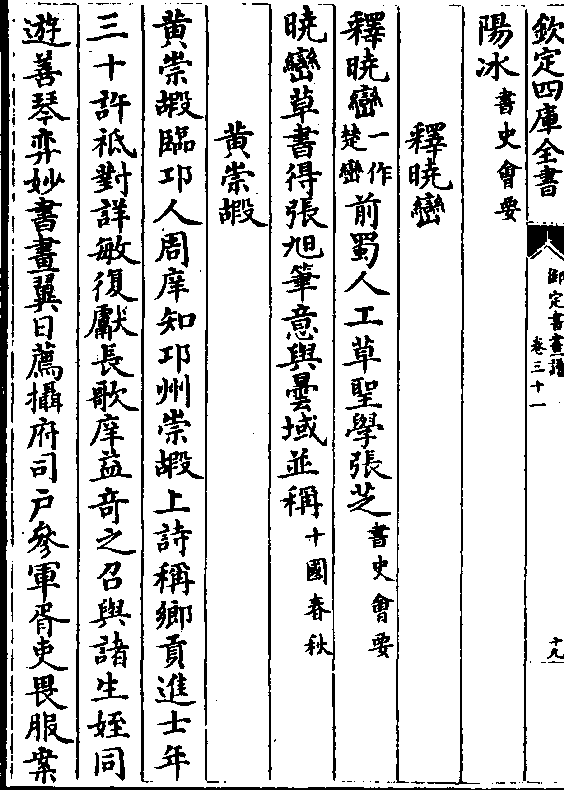 欽定四庫全書
御定書畫譜
卷三十一
十九
陽冰書史會要
釋曉巒
釋曉巒一作楚巒前蜀人工草聖學張芝書史會要
曉巒草書得張旭筆意與曇域並稱十國春秋
黄崇嘏
黄崇嘏臨邛人周庠知邛州崇嘏上詩稱鄉貢進士年
三十許祗對詳敏復獻長歌庠益奇之召與諸生姪同
遊善琴弈妙書畫翼日薦攝府司户參軍胥吏畏服案